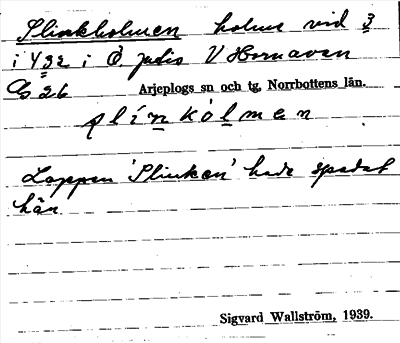 Slinkholmen holme vid 3
i Y32 i Ö. V Hornavan
G 26 Arjeplogs sn och tg, Norrbottens län.
slinkólmen
Lappen 'Slinken' hade spadat
här.
Sigvard Wallström, 1939.